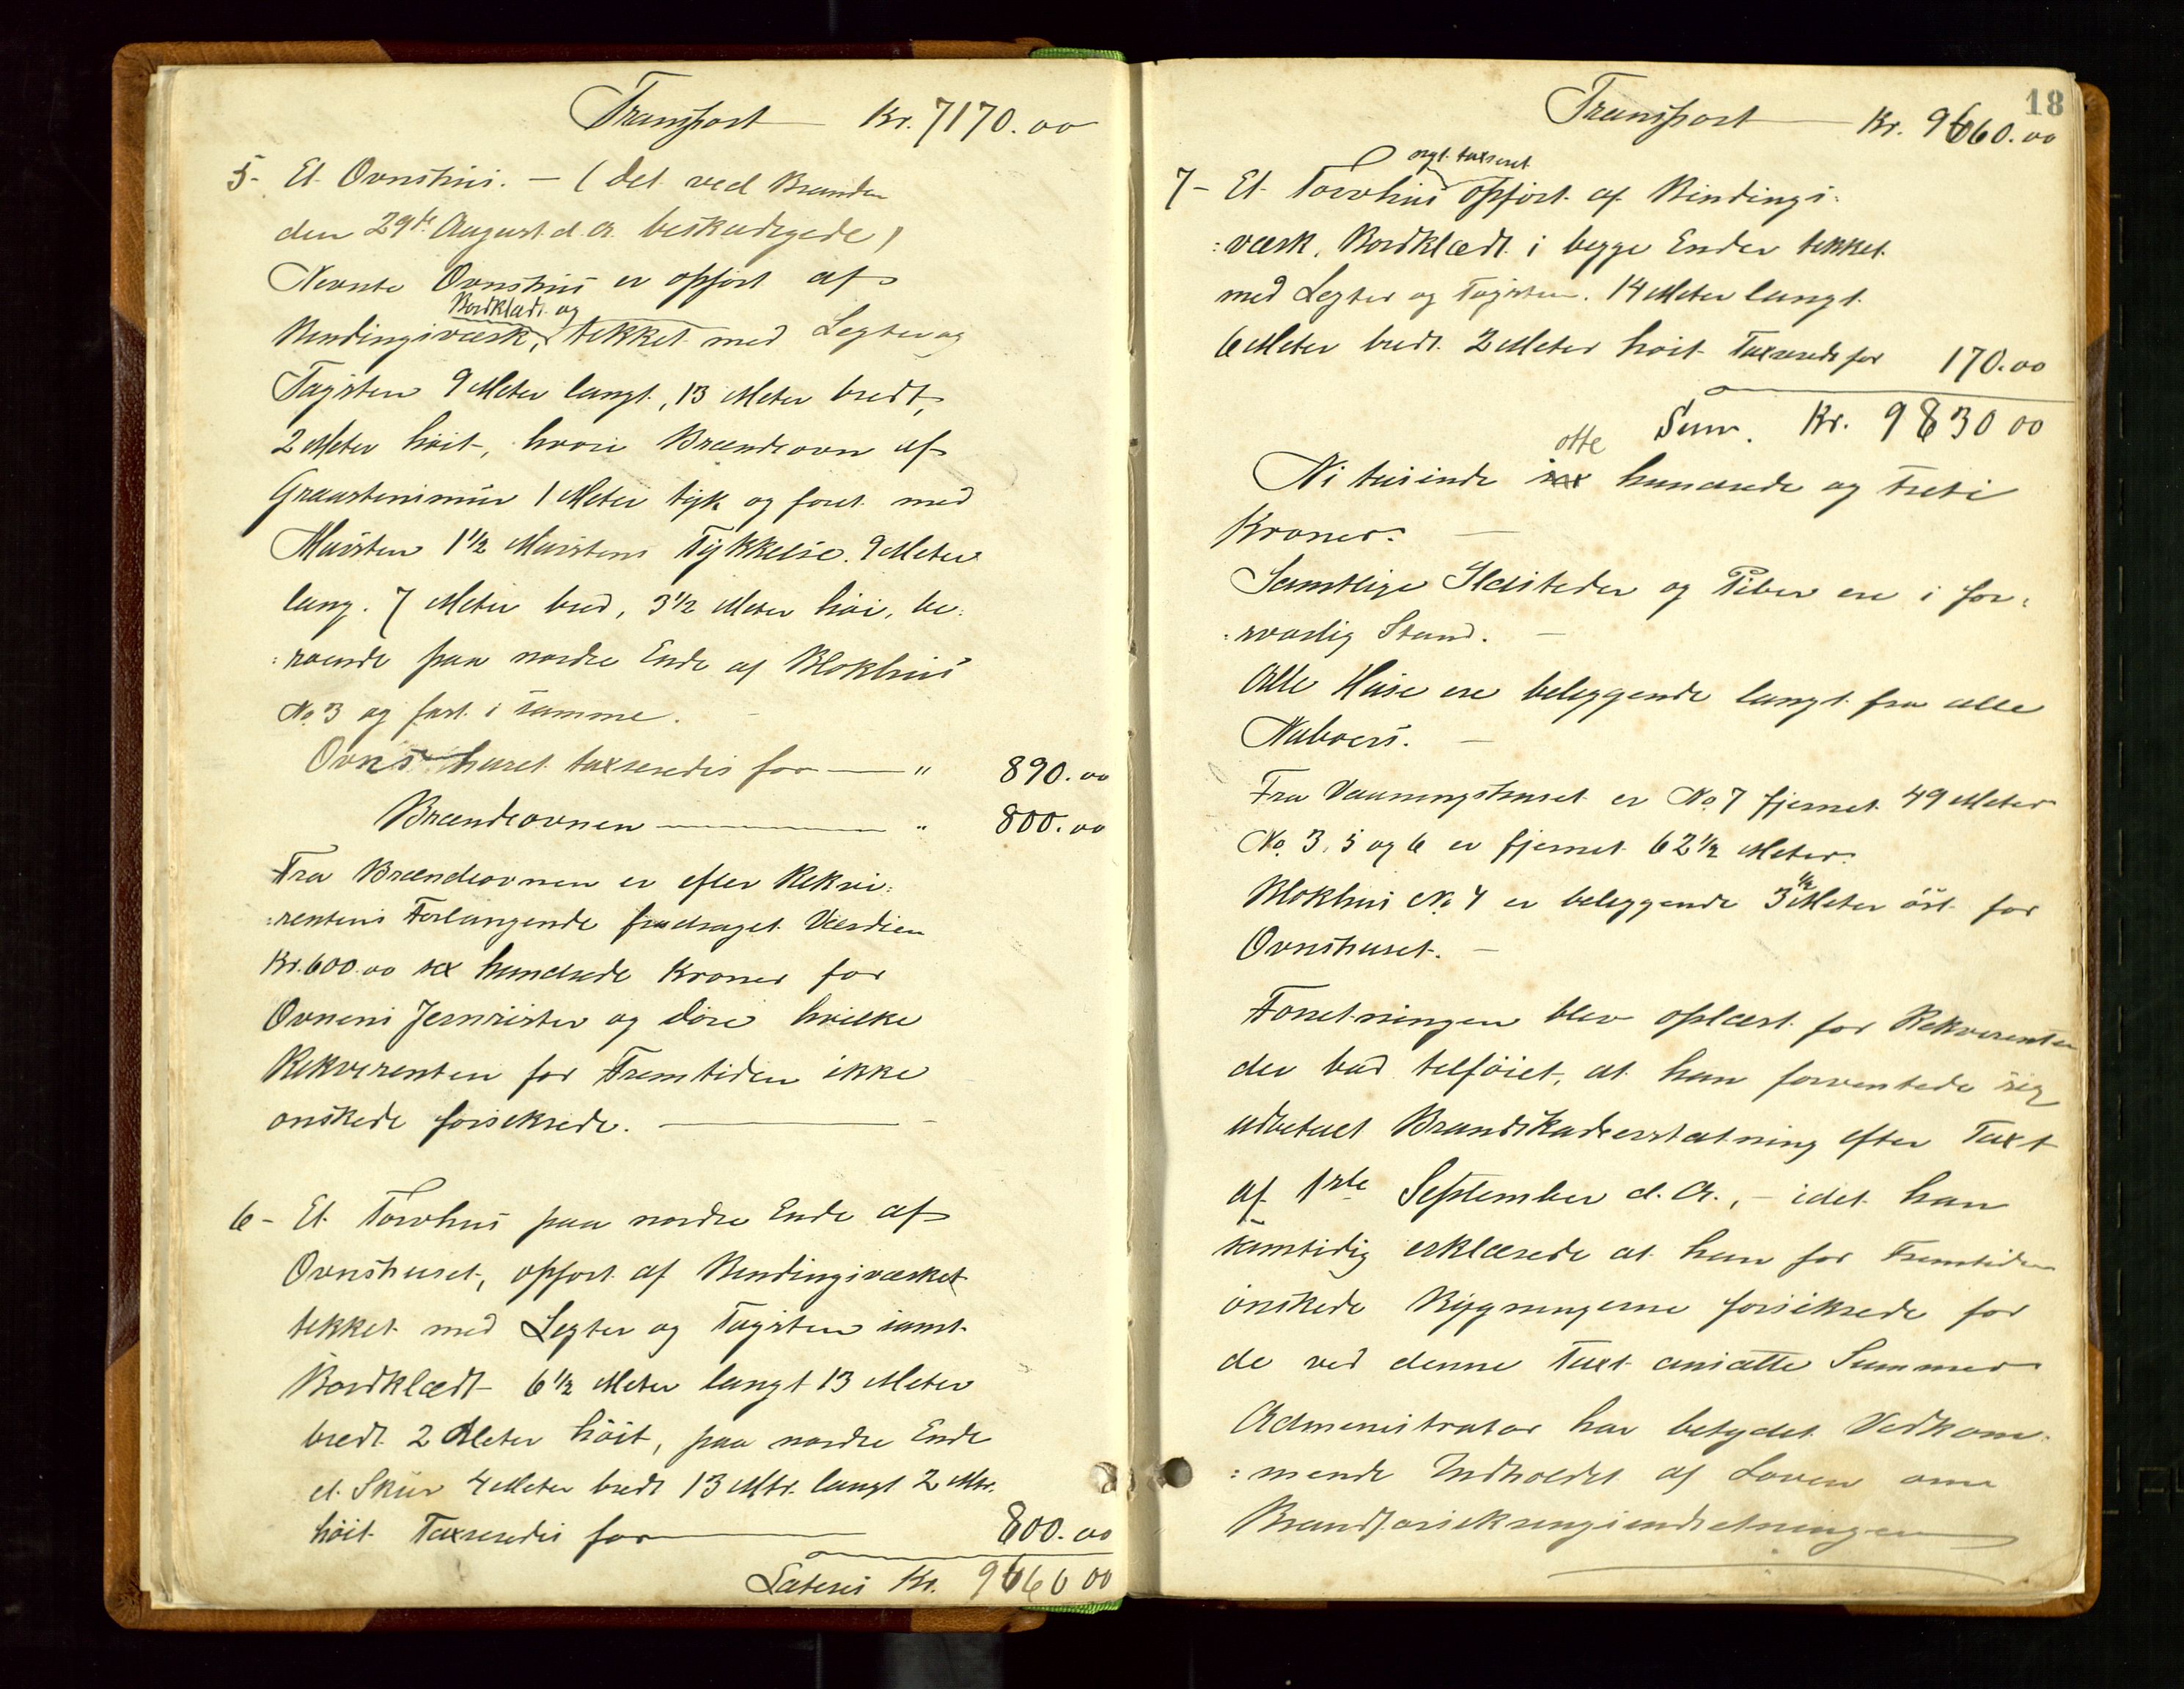 Transport Kr. 7170.00
5- Et Ovnshus. – (det ved Branden
den 29de August d. A. beskadigede)
Nevnte Ovnshus er opført af
Bordklædt og
Bindingsværk, tekket med Legter og
Tagsten 9 Meter langt, 13 Meter bredt,
2 Meter høit, hvori Brændeovn af
Graastensmur 1 Meter tyk og foret med
Mursten 1 1/2 Murstens Tykkelse. 9 Meter
lang. 7 Meter bred, 3 1/2 Meter høi, be:
:roende paa nordre Ende af Blokhus
No 3 og fast i samme. –
Ovnshuset taxseredes for — " 890.00
Brændeovnen — " 800.00
Fra Brændeovnen er efter Rekvi:
:rentens Forlangende fradraget Værdien
Kr. 600.00 sex hundrede Kroner for
Ovnens Jernrister og döre hvilke
Rekvirenten for Fremtiden ikke
önskede forsikrede. —
6- Et Torvhus paa nordre Ende af
Ovnshuset, opfort af Bindingsværket
tekket med Legter og Tagsten samt
Bordklædt 6 1/2 Meter langt 13 Meter
bredt 2 Meter höit, paa nordre Ende
et Skur 4 Meter bredt 13 Mtr. langt 2 Mtr.
höit Taxseredes for — 800.00
Lateris Kr. 9660 00
18
Transport — Kr. 9660.00
nyt taxseret
7- Et Torvhus opført af Bindings:
:værk, Bordklædt i begge Ender tekket
med Legter og Tagsten. 14 Meter langt
6 Meter bredt 2 Meter höit Taxseredes for 170.00
Sum. Kr. 9830 00
otte
Ni tusinde sex hundrede og treti
Kroner. —
Samtlige Ildsteder og Piber ere i for:
:svarlig Stand. —
Alle Huse ere beleggende langt fra alle
Naboers. —
Fra Vaaningshuset er No 7 fjernet 49 Meter
No. 3, 5 og 6 er fjernet 62 1/2 Meter.
Blokhus No 4 er beleggende 3 1/2 Meter öst for
Ovnshuset. —
Forretningen blev oplæst for Rekvirenten
der bad telföiet, at han forventede sig
udbetalt Brandskadeerstatning efter Taxt
af 1ste September d. A., – idet han
samtidig erklærede at han for Fremtiden
önskede Bygningerne forsikrede for
de ved denne Taxt ansatte Summer
Administrator har betydet Vedkom:
:mende Indholdet af Loven om
Brandforsikringsindretningen